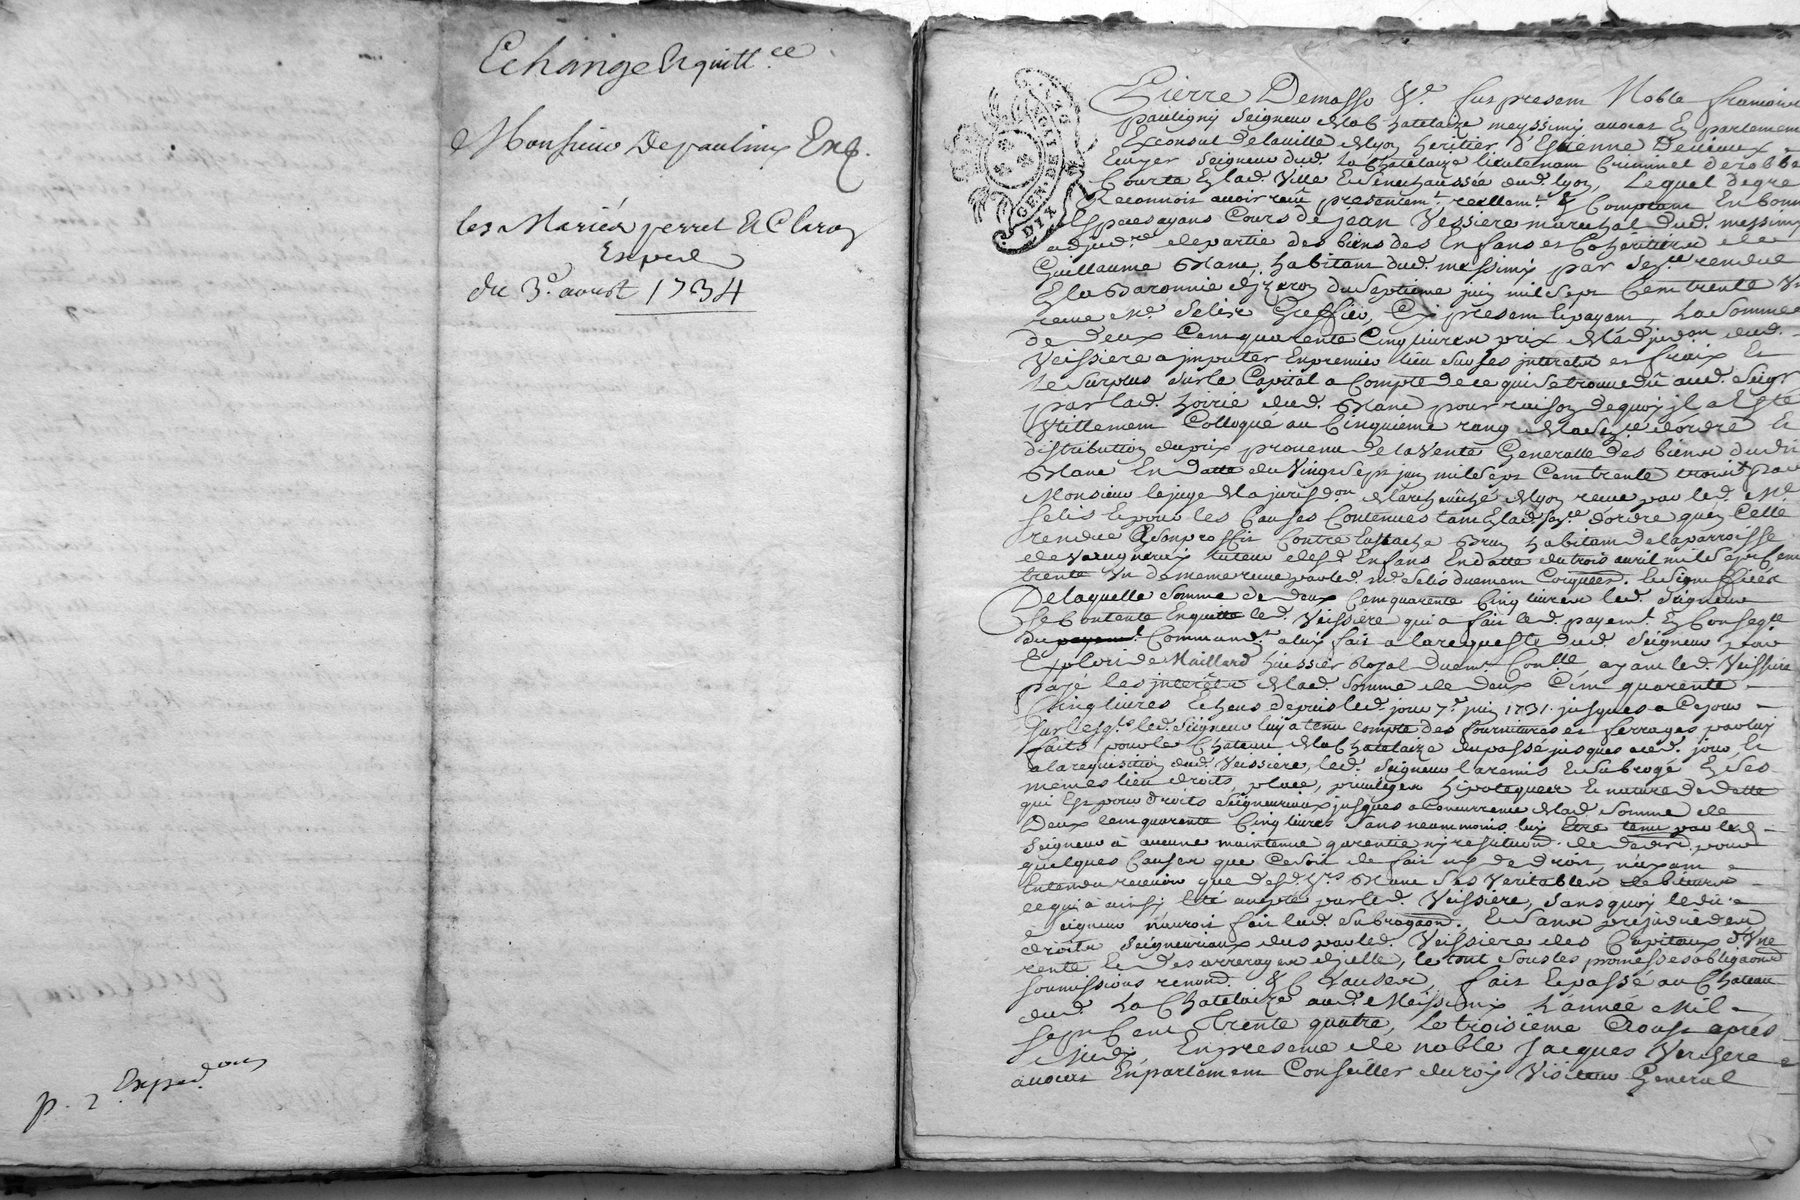 Echange Et quitt.ce
Monsieur Depauliny En
les Mariés perret Et Claro
Exped
du 3.e aoust 1734
p. 2. Exped.ons
GEN DE DIX
Pierre Demasso fut present Noble francois
pauligny Seigneur de la Chatelaize meyssimy avocat En parlement
Exconsul de la ville de lyon heritier d'Estienne
Ecuyer Seigneur dud. La Chatelaize lieutenant Criminel de robbe
Courte En lad. Ville Et Sénéchaussée dud. lyon, Lequel de gre
Reconnoit avoir receu presentem.t reellem.t & Comptant En bonnes
Especes ayans Cours de jean Vessiere marechal dud. messimy
adjud.re de partie des biens des Enfans et Coheritiers de
Guillaume Blanc habitant dud. messimy par Se.ce rendue
En la Baronnie d'yzeron du septieme juin mil Sept Cent trente Un
receue M.e Selis Greffier, Cy present Et payant, La Somme
de deux Cent quarente Cinq livres prix de l'adjud.on dud.
Veissiere a imputer En premier lieu Sur les interests et fraix Et
le Surplus Sur le Capital a Compte de ce qui Se trouve dû aud. Seigr
par lad. hoirie dud. Blanc pour raison de quoy il a Esté
Utillement Colloqué au Cinquieme rang de la Se.ce d'ordre Et
distribution du prix provenu de la Vente Generalle des biens dudit
Blanc En datte du Vingt Sept juin mil Sept Cent trente trois par
Monsieur le juge de la jurisd.on de l'archeveché de lyon receue par led. M.e
Selis Et pour les Causes Contenues tant En lad. Se.ce d'ordre qu'en Celle
rendue a Son proffit Contre Eustache Brun habitant de la parroisse
de Vaugneray tuteur desd. Enfans En datte du trois avril mil Sept Cent
trente Un de meme receue par led. M.e Selis duement Et Signiffiées
De laquelle Somme de deux Cent quarente Cinq livres led. Seigneur
Se Contente En quitte led. Veissiere qui a fait led. payem.t En Conseq.ce
du payem.t Command.t a luy fait a la requeste dud. Seigneur par
Exploit de Maillard huissier Royal ayant led. Veissiere
payé les interests de lad. Somme de deux Cent quarente
Cinq livres Echeus depuis led. jour 7.e juin 1731. jusques a Ce jour
Sur lesq.ls led. Seigneur luy a tenu Compte des fournitures et ferrages par luy
faits pour le Chateau de la Chatelaize du passé jusques aud. jour Et
a la requisition dud. Veissiere, led. Seigneur l'a remis Et Subrogé En Ses
memes lieu droits place, privileges hipoteques Et nature de dette
qui Est pour droits Seigneuriaux jusques a Concurrence de lad. Somme de
Deux Cent quarente Cinq livres Sans neanmoins luy Etre tenu par led.
Seigneur à aucune maintenue garentie ny restitution de den.rs pour
quelques Causes que Ce Soit de fait ny de droit, n'ayant
Entendu recevoir que desd. h.rs Blanc Ses Veritables debiteurs
ce qui a ainsy Eté accepté par led. Veissiere, Sans quoy ledit
Seigneur n'auroit fait lad. Subrogaon. Et Sans prejudice des
droits Seigneuriaux dus par led. Veissiere des Capitaux d'Une
rente Et des arrerages d'icelle, le tout Sous les promesses obligaons
Soumissions renonc. & Clauses, fait Et passé au Chateau
dud. La Chatelaize aud. Meissimy L'année Mil
Sept Cent Trente quatre, Le troisieme Aoust après
midy En presence de noble Jacques Verchere
avocat En parlement Conseiller du roy Visiteur General